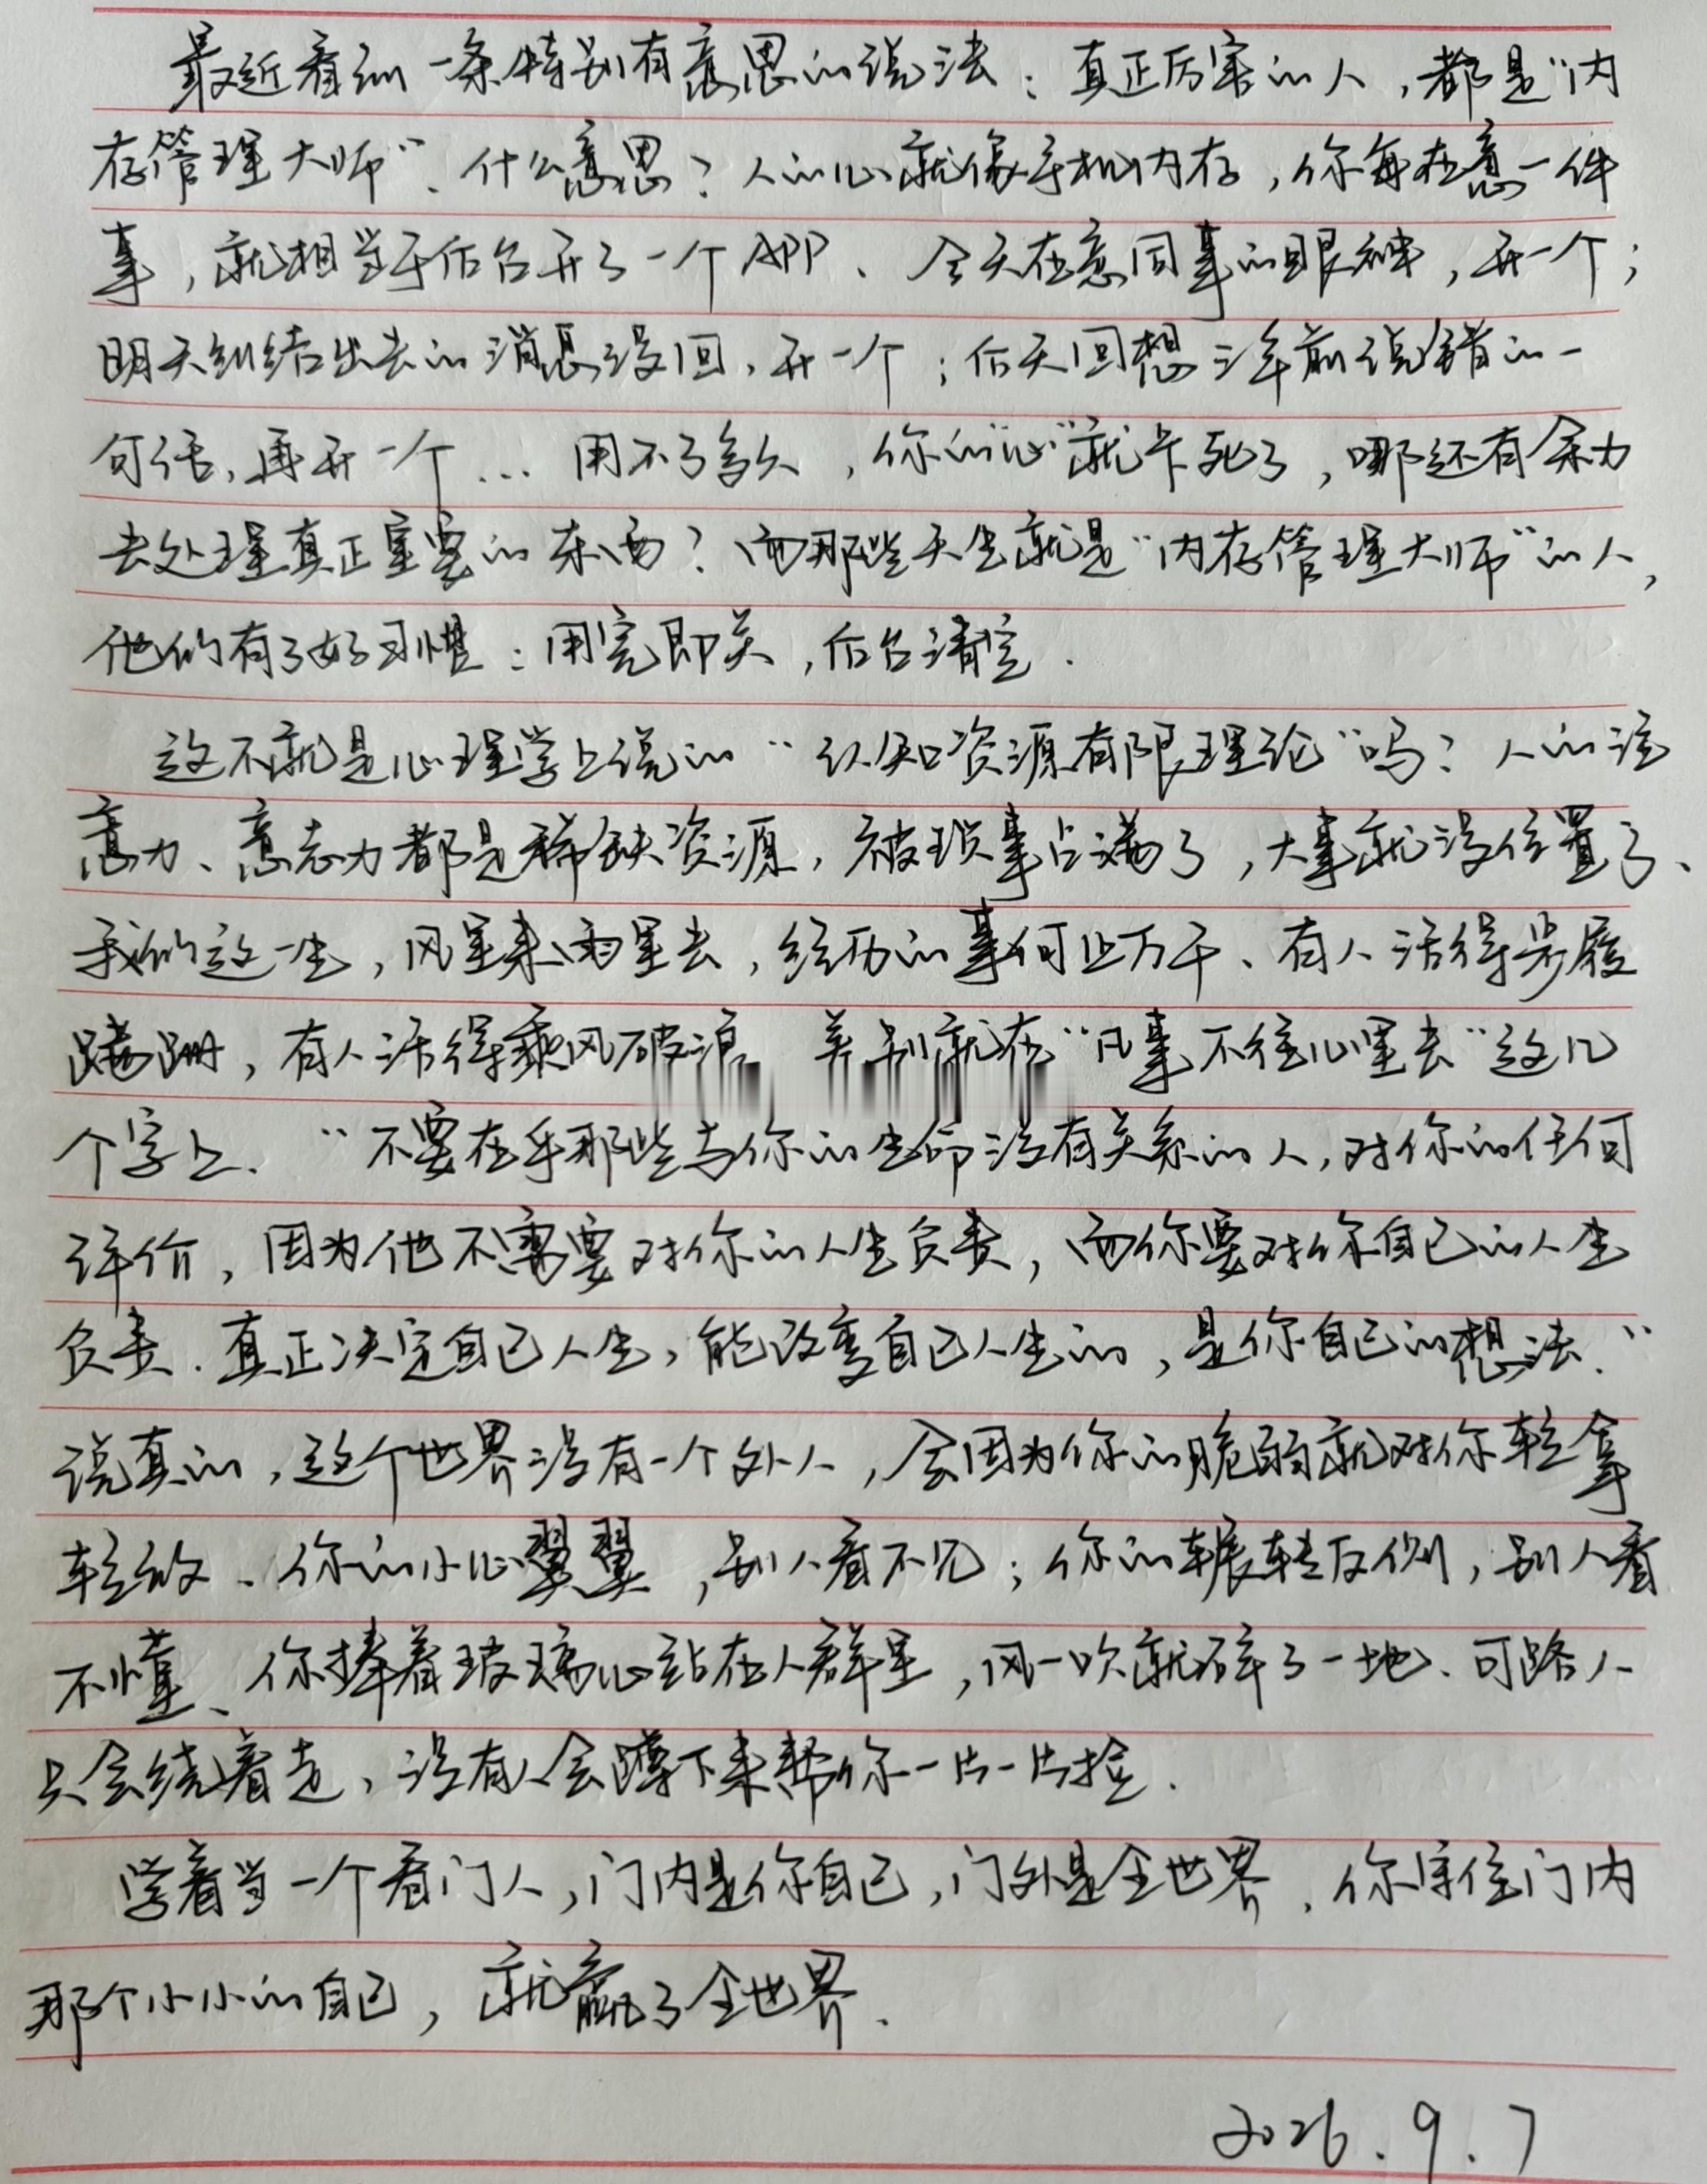 最近看到一条特别有意思的说法：真正厉害的人，都是“内
存管理大师”、什么意思？人的心就像手机内存，你每在意一件
事，就相当于后台开了一个APP、今天在意同事的眼神，开一个；
明天纠结出去的消息没回，开一个；后天回想三年前说错的一
句话，再开一个… 用不了多久，你的“心”就卡死了，哪还有余力
去处理真正重要的东西？而那些天生就是“内存管理大师”的人，
他们有了好习惯：用完即关，后台清空．
这不就是心理学上说的“认知资源有限理论”吗？人的注
意力、意志力都是稀缺资源，被琐事占满了，大事就没位置了、
我们这一生，风里来雨里去，经历的事何止万千、有人活得步履
蹒跚，有人活得乘风破浪 差别就在“凡事不往心里去”这几
个字上、“不要在乎那些与你的生命没有关系的人，对你的任何
评价，因为他不需要对你的人生负责，而你要对你自己的人生
负责．真正决定自己人生，能改变自己人生的，是你自己的想法．”
说真的，这个世界没有一个外人，会因为你的脆弱就对你轻拿
轻放．你的小心翼翼，别人看不见；你的辗转反侧，别人看
不懂、你捧着玻璃心站在人群里，风一吹就碎了一地、可路人
只会绕着走，没有人会蹲下来帮你一片一片捡．
学着当一个看门人，门内是你自己，门外是全世界．你守住门内
那个小小的自己，就赢了全世界．
2026.9.7